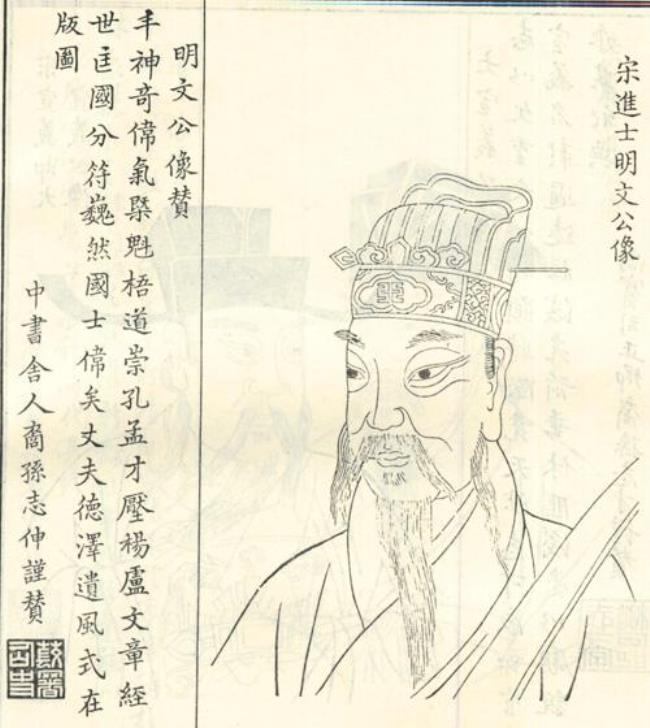 宋進士明文公像
明文公像贊
丰神奇偉氣槩魁梧道崇孔孟才壓楊盧文章經
世匡國分符巍然國士偉矣丈夫德澤遺風式在
版圖
中書舍人裔孫志伸謹贊